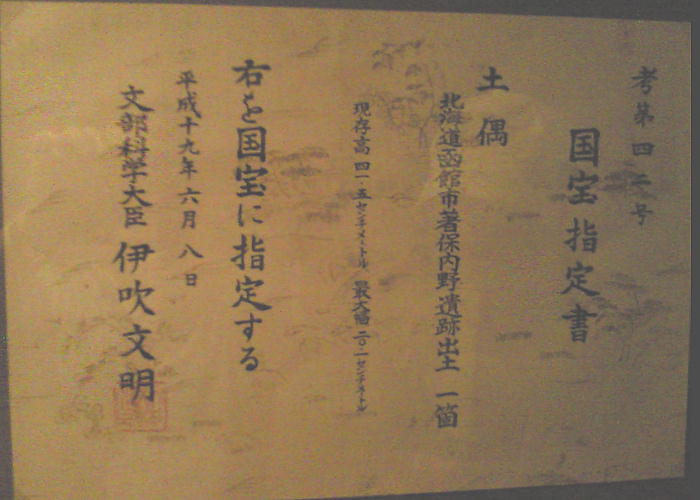 考第四二号
国宝指定書
土偶
北海道函館市著保内野遺跡出土 一箇
現存高 四一・五センチメートル 最大幅 二〇・一センチメートル
右を国宝に指定する
平成十九年六月八日
文部科学大臣 伊吹文明